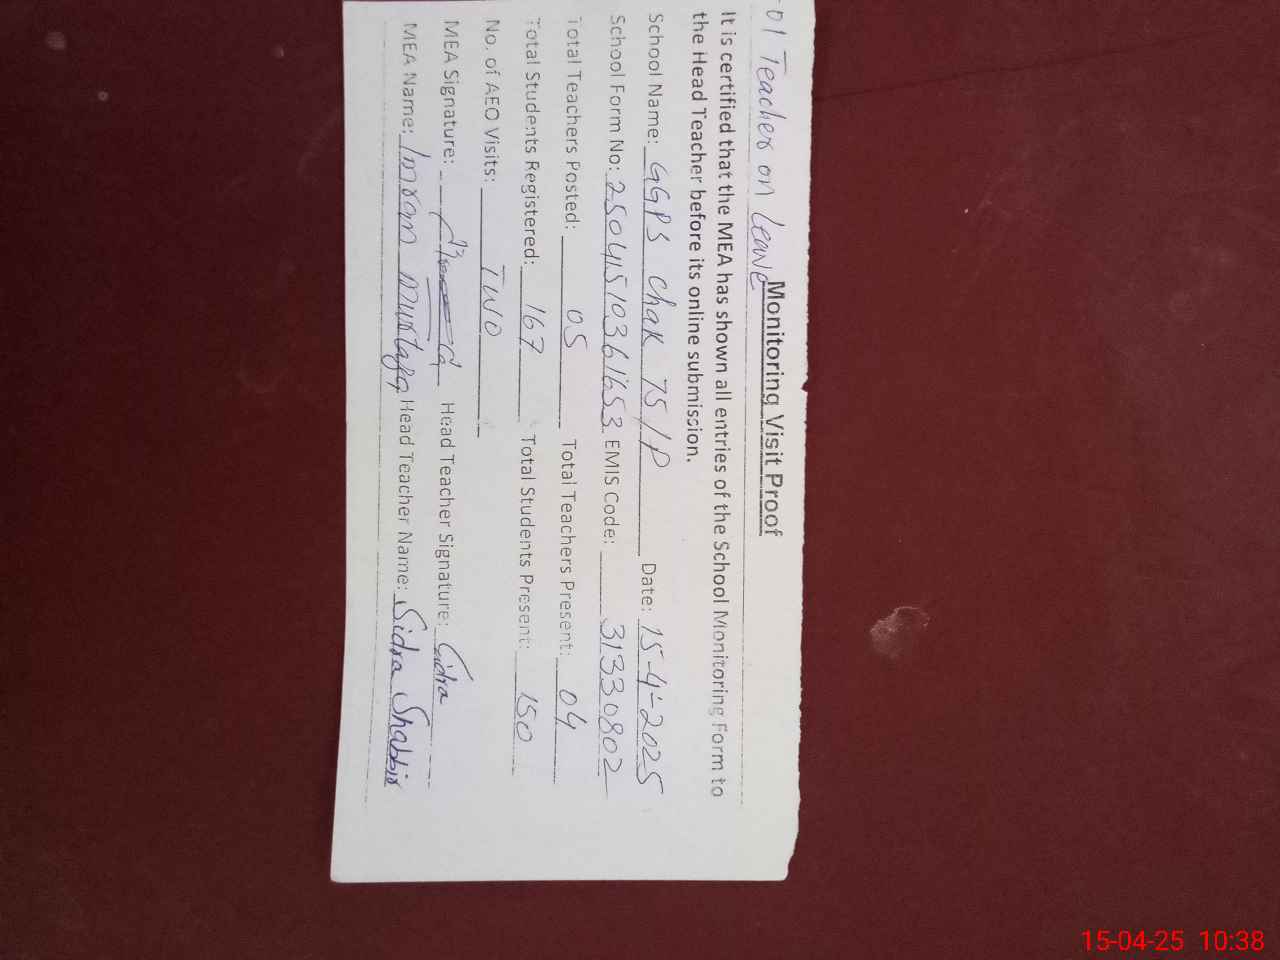 01 Teacher on Leave
Monitoring Visit Proof
It is certified that the MEA has shown all entries of the School Monitoring Form to
the Head Teacher before its online submission.
School Name: GGPS Chak 75/P Date: 15-4-2025
School Form No: 25041510361653 EMIS Code: 31330802
Total Teachers Posted: 05 Total Teachers Present: 04
Total Students Registered: 167 Total Students Present: 150
No. of AEO Visits: TWO
MEA Signature: Head Teacher Signature: Sidra
MEA Name: Imran Mustafa Head Teacher Name: Sidra Shabbir
15-04-25 10:38